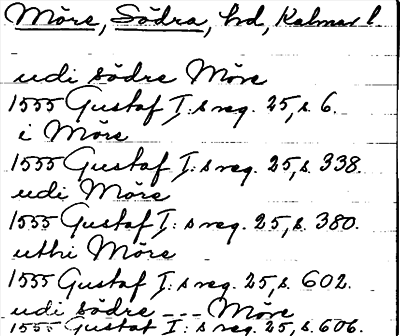 Möre, Södra, hd, Kalmar l.
udi södre Möre
1555 Gustaf I:s reg. 25, s. 6.
i Möre
1555 Gustaf I:s reg. 25, s. 338.
udi Möre
1555 Gustaf I:s reg. 25, s. 380.
uthi Möre
1555 Gustaf I:s reg. 25, s. 602.
udi södre --- Möre
1555 Gustaf I:s reg. 25, s. 606.